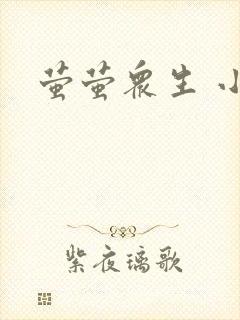 萤萤眾生 小
紫夜璃歌